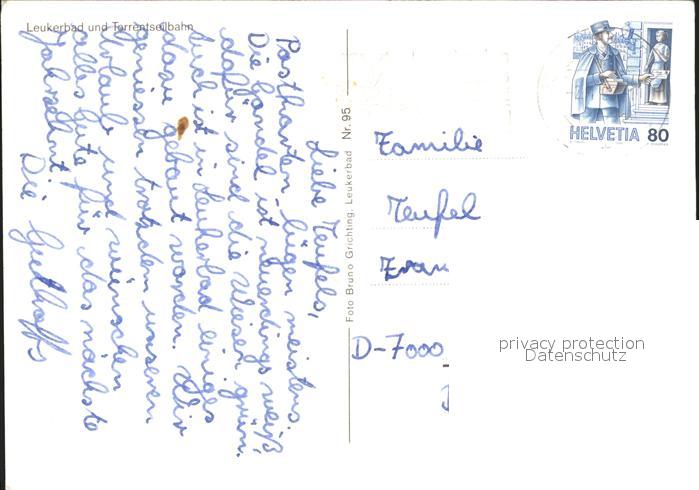 Leukerbad und Torrentseilbahn
Liebe Teufels,
Postkarten lügen meistens.
Die Gondel ist neuerdings weiß
dafür sind die Wiesen grün.
Auch ist in Leukerbad einiges
dazu gebaut worden. Wir
geniessen trotzdem unseren
Urlaub und wünschen
alles Gute für das nächste
Jahrzehnt.
Die
Foto Bruno Grichting, Leukerbad Nr. 95
HELVETIA 80
Familie
Teufel
D-7000
privacy protection
Datenschutz